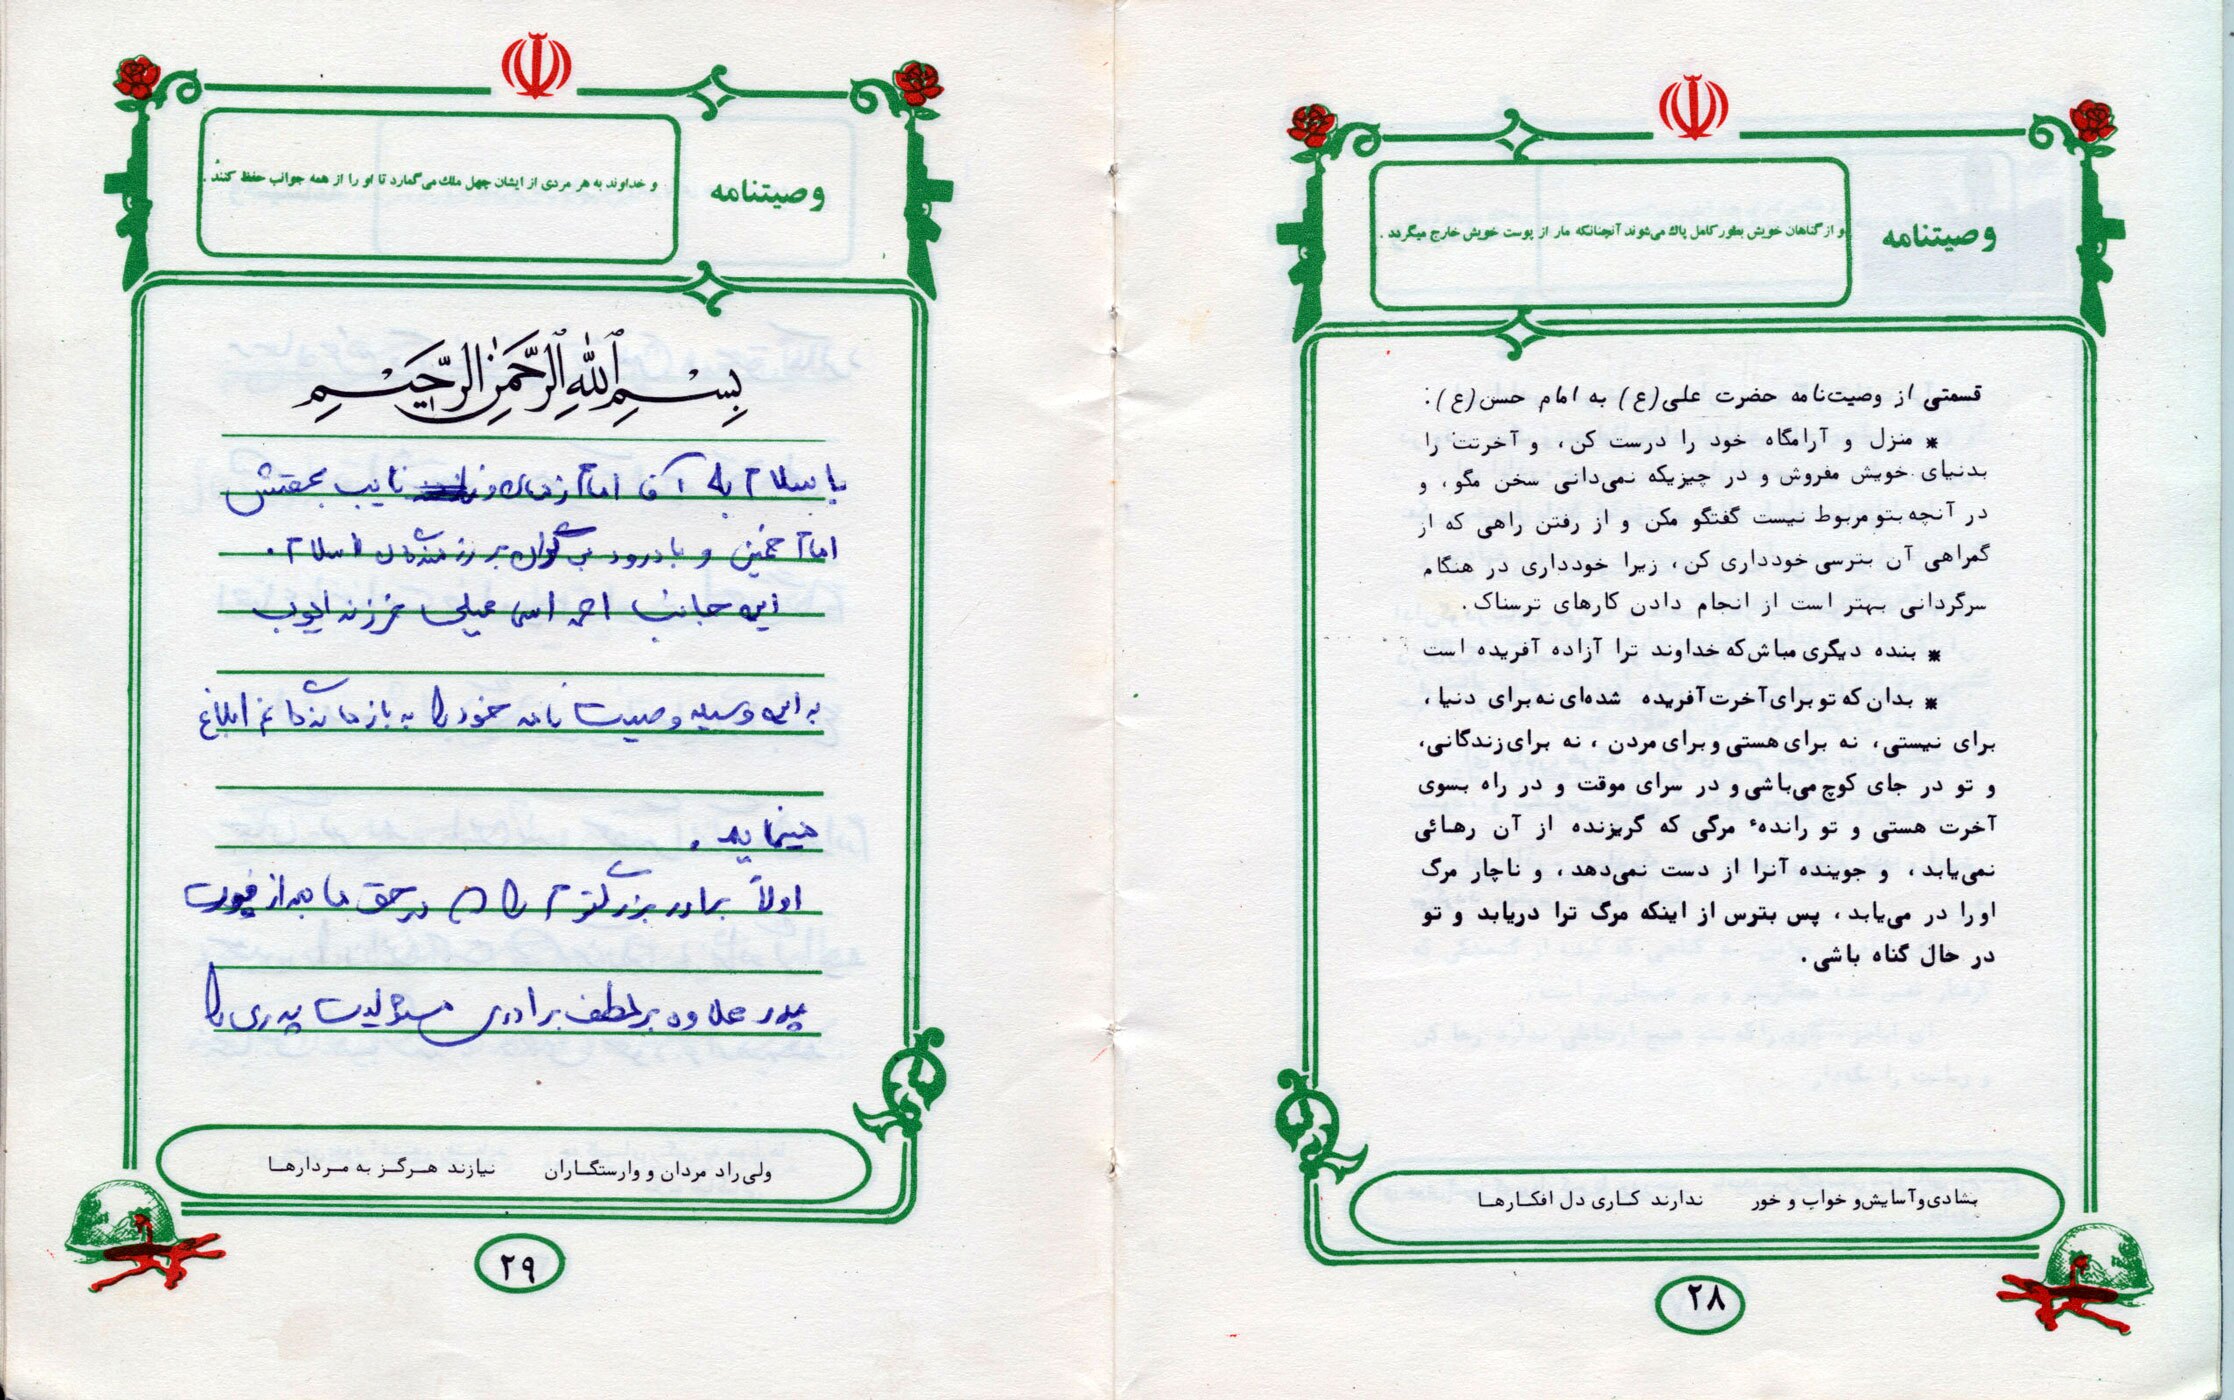 وصیتنامه
و از گناهان خویش بطور کامل پاك می‌شوند آنچنانکه مار از پوست خویش خارج میگردد .
قسمتی از وصیت‌نامه حضرت علی(ع) به امام حسن(ع):
* منزل و آرامگاه خود را درست کن، و آخرتت را
بدنیای خویش مفروش و در چیزیکه نمی‌دانی سخن مگو، و
در آنچه بتو مربوط نیست گفتگو مکن و از رفتن راهی که از
گمراهی آن بترسی خودداری کن، زیرا خودداری در هنگام
سرگردانی بهتر است از انجام دادن کارهای ترسناک.
* بنده دیگری مباش که خداوند ترا آزاده آفریده است
* بدان که تو برای آخرت آفریده شده‌ای نه برای دنیا،
برای نیستی، نه برای هستی و برای مردن، نه برای زندگانی،
و تو در جای کوچ می‌باشی و در سرای موقت و در راه بسوی
آخرت هستی و تو راندهٔ مرگی که گریزنده از آن رهائی
نمی‌یابد، و جوینده آنرا از دست نمی‌دهد، و ناچار مرگ
او را در می‌یابد، پس بترس از اینکه مرگ ترا دریابد و تو
در حال گناه باشی.
بشادی و آسایش و خواب و خور ندارند کاری دل افکارها
۲۸
وصیتنامه
و خداوند به هر مردی از ایشان چهل ملك می‌گمارد تا او را از همه جوانب حفظ کنند .
بِسْمِ اللهِ الرَّحْمٰنِ الرَّحِيمِ
با سلام به آقا امام زمان و نایب بحقش
امام خمینی و با درود بی کران بر رزمندگان اسلام.
این جانب احمد اسماعیلی فرزند ایوب
به این وسیله وصیت نامه خود را به بازماندگانم ابلاغ
مینماید.
اولاً برادر بزرگترم را که در حق ما بعد از فوت
پدر علاوه بر لطف برادری مسئولیت پدری را
ولی راد مردان و وارستگاران نیازند هرگز به مردارها
۲۹